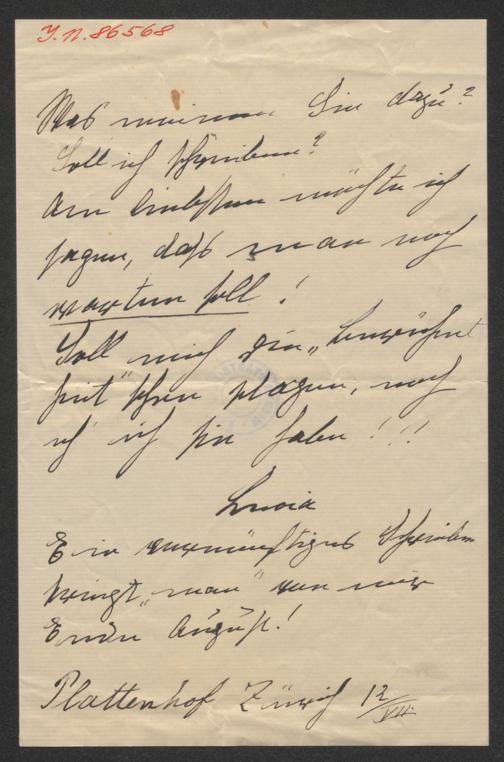 J.N. 86568
Was meinen Sie dazu?
Soll ich schreiben?
Am liebsten möchte ich
sagen, daß man noch
warten soll!
Soll mich die „Berühmt
heit" schon plagen, noch
eh' ich sie habe!!!
Ein vernünftiges Schreiben
kriegt „man" von mir
Ende August!
Plattenhof Zürich 12/VII.